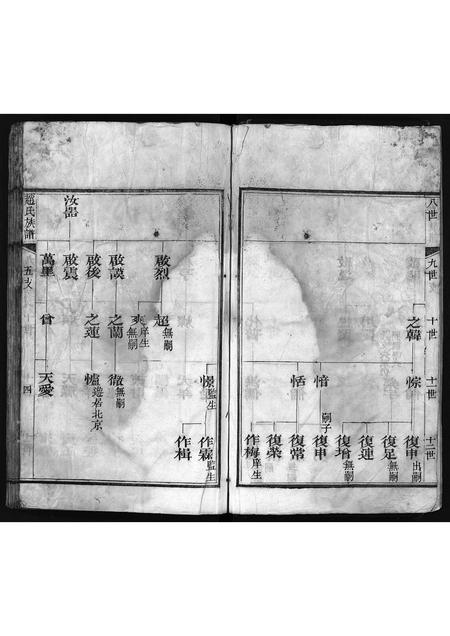 八世
九世
十世
十一世
十二世
之韓
悰
復申出嗣
復足無嗣
復連
復增無嗣
愔
嗣子
復申
恬
復常
復榮
作梅庠生
憬監生
作霖監生
作楫
啟烈
超無嗣
爽庠生無嗣
啟謨
之蘭
徵無嗣
啟後
之蓮
爐遊者北京
汝器
啟震
萬里
曾
天愛
趙氏族譜
五支
四